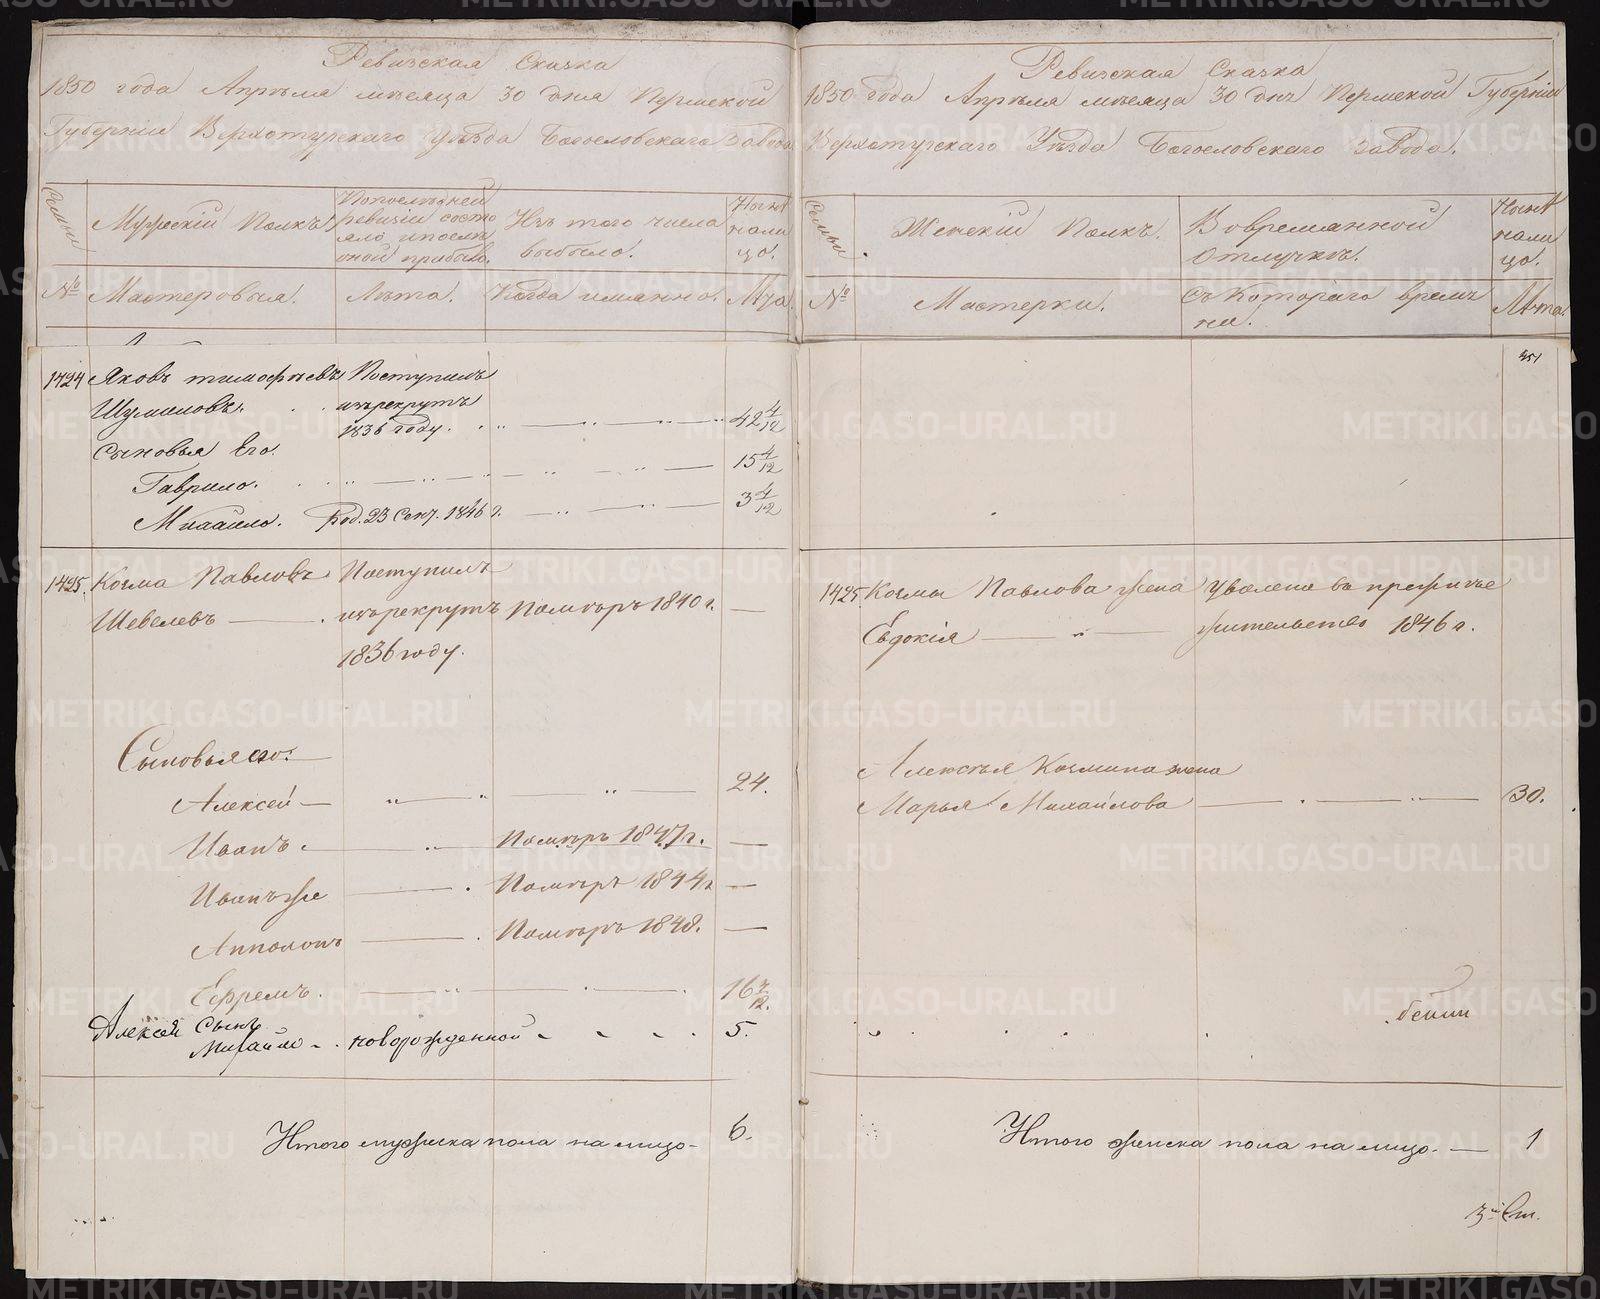 Ревизская Сказка
1850 года Апрѣля мѣсяца 30 дня Пермской
Губерніи Верхотурскаго Уѣзда Богословскаго завода.
Семьи
Мужескій Полкъ.
По последней
ревизіи состо
яло и после
оной прибыло.
Изъ того числа
выбыло.
Ныне
нали
цо.
№
Мастеровыя.
Лѣта.
Когда имянно.
Лѣта.
1424 Яковъ тимофѣевъ Поступилъ
Шумиловъ. изъ рекрутъ
1836 году. 42 4/12
Сыновья Его.
Гаврило. 15 4/12
Михаило. Род. 23 Сент. 1846 г. 3 4/12
1425. Козма Павловъ Поступилъ
Шевелевъ — изъ рекрутъ Помѣръ 1840 г. —
1836 году.
Сыновья его:
Алексей — 24.
Иванъ. Помѣръ 1847 г. —
Иванъ же Помѣръ 1844 г. —
Апполонъ Помѣръ 1848. —
Ефремъ. 16 7/12.
Алексея Сынъ
Михайло новорожденной 5.
Итого мужеска пола на лицо - 6.
Ревизская Сказка
1850 года Апрѣля мѣсяца 30 дня Пермской Губерніи
Верхотурскаго Уѣзда Богословскаго завода.
Семьи.
Женскій Полкъ.
Во временной
отлучкѣ.
Ныне
нали
цо.
№
Мастерки.
Съ котораго време
ни.
Лѣта.
351
1425 Козмы Павлова жена уволена въ прежнѣе
Евдокія — жительство 1846 г.
Алексѣя Козмина жена
Марья Михайлова 30.
Итого женска пола на лицо. — 1